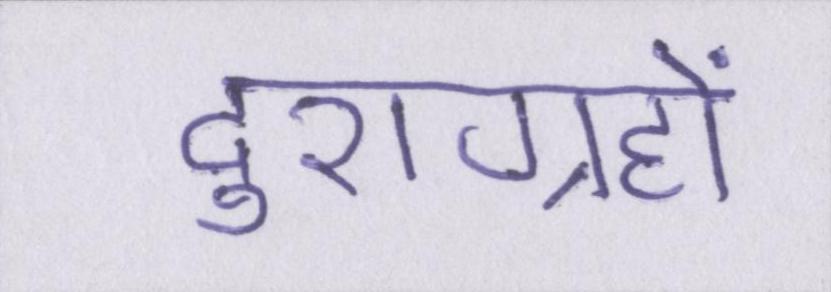 दुराग्रहों